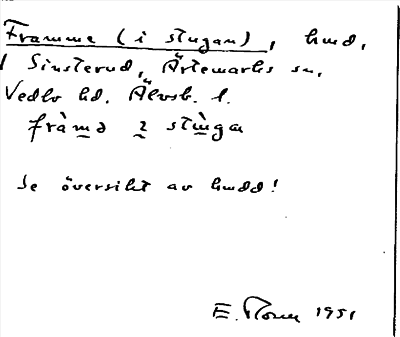 Framme (i stugan), hmd,
Sinsterud, Ärtemarks sn,
Vedbo hd, Älvsb. l.
fràmə i stùga
Se översikt av hmdd!
E. Noreen 1951